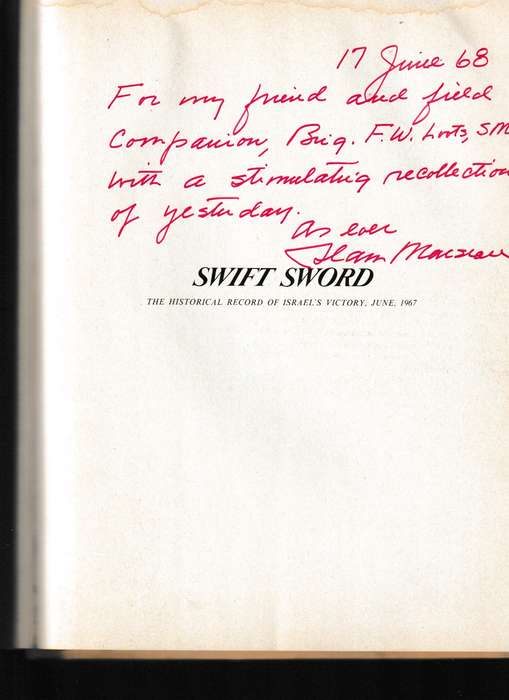 17 June 68
For my friend and field
Companion, Brig. F.W. Loots, SM
with a stimulating recollection
of yesterday.
As ever
Slam Marshall
SWIFT SWORD
THE HISTORICAL RECORD OF ISRAEL'S VICTORY, JUNE, 1967